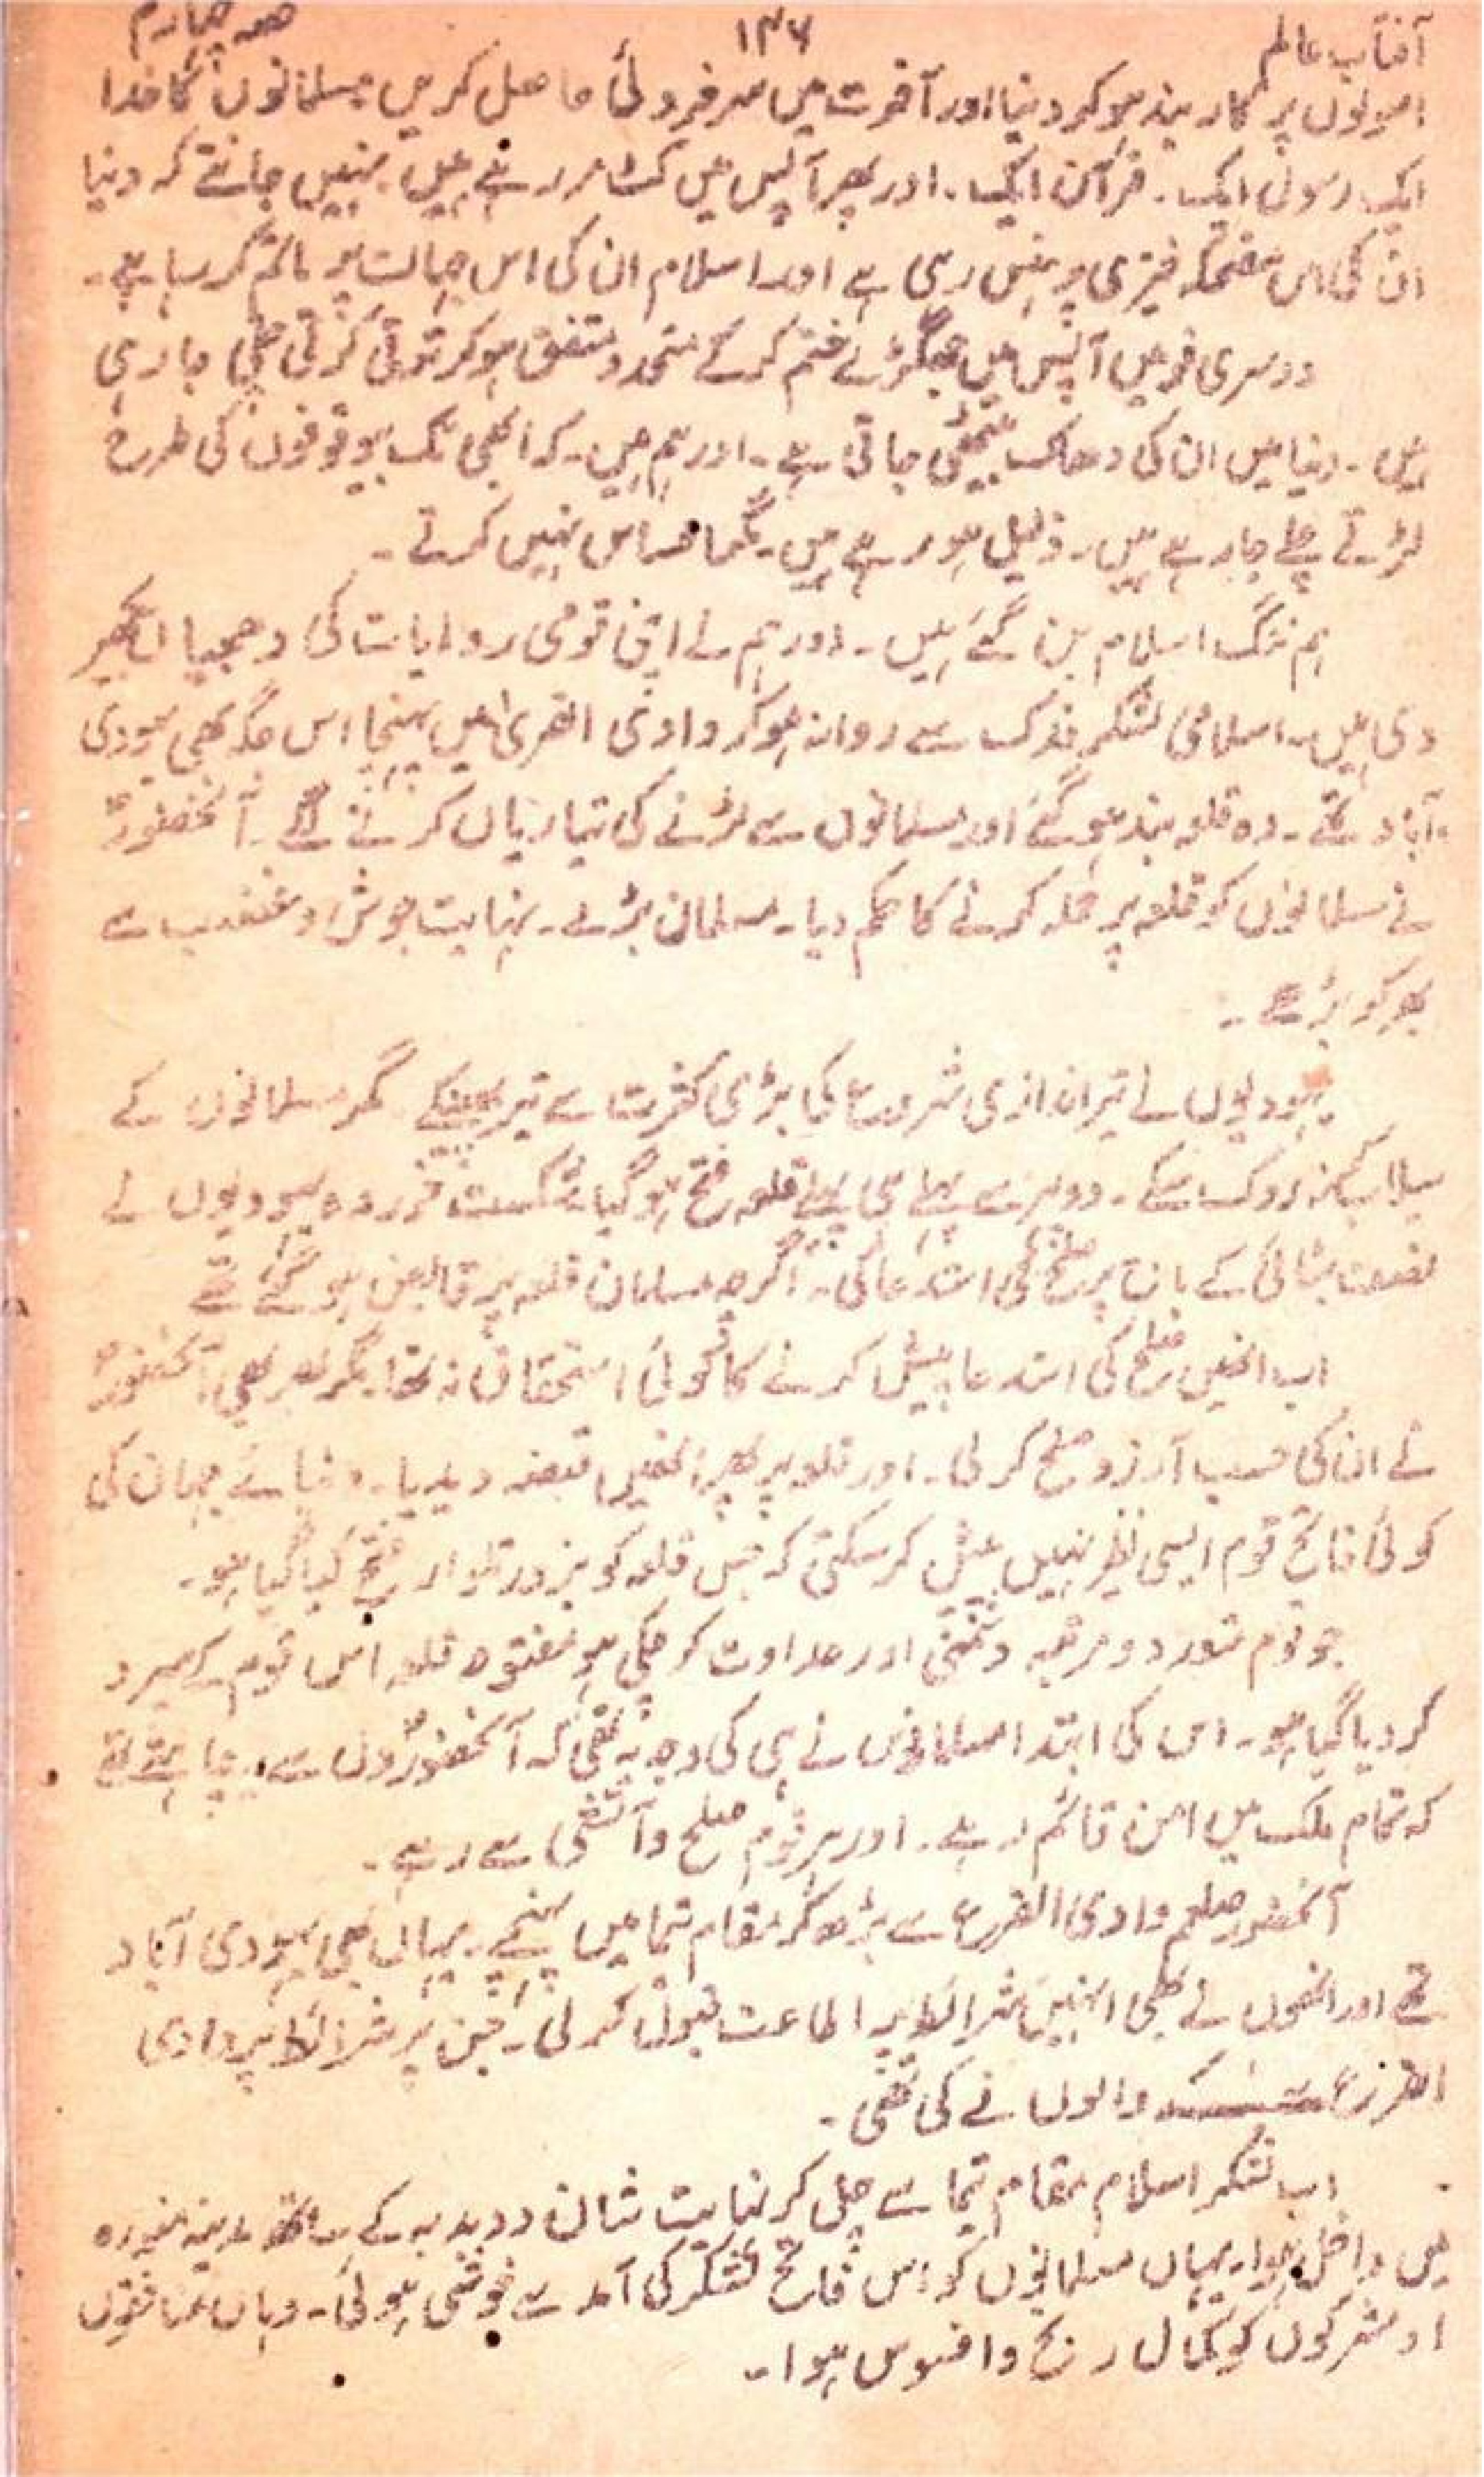 آفتاب عالم ۱۴۶ حصہ چہارم
اصولوں پر کاربند ہوکر دنیا اور آخرت میں سرفروئی حاصل کریں مسلمانوں کا خدا
ایک رسول ایک۔ قرآن ایک۔ اور پھر آپس میں کٹ مر رہے ہیں۔ نہیں جانتے کہ دنیا
ان کی اس مضحکہ خیزی پر ہنس رہی ہے اور اسلام ان کی اس جہالت پر ماتم کر رہا ہے۔
دوسری قومیں آپس میں جھگڑے ختم کرکے متحد و متفق ہوکر ترقی کرتی چلی جا رہی
ہیں۔ دنیا میں ان کی دھاک بیٹھتی جاتی ہے۔ اور ہم ہیں۔ کہ ابھی تک بیوقوفوں کی طرح
لڑتے چلے جا رہے ہیں۔ ذلیل ہو رہے ہیں۔ مگر احساس نہیں کرتے۔
ہم ننگ اسلام بن گئے ہیں۔ اور ہم نے اپنی قومی روایات کی دھجیاں بکھیر
دی ہیں۔ اسلامی لشکر فدک سے روانہ ہوکر وادی القریٰ میں پہنچا اس جگہ بھی یہودی
آباد تھے۔ وہ قلعہ بند ہو گئے اور مسلمانوں سے لڑنے کی تیاریاں کرنے لگے۔ آنحضورؐ
نے مسلمانوں کو قلعہ پر حملہ کرنے کا حکم دیا۔ مسلمان بڑے۔ نہایت جوش و غضب سے
بھر کو بڑھے۔
یہودیوں نے تیر اندازی شروع کی بڑی کثرت سے تیر پھینکے مگر مسلمانوں کے
سیلاب کو نہ روک سکے۔ دوپہر سے پہلے ہی پہلے قلعہ فتح ہو گیا شکست خوردہ یہودیوں نے
نصف بٹائی کے بات پر صلح کی استدعا کی۔ اگرچہ مسلمان قلعہ پر قابض ہو گئے تھے
اب انھیں صلح کی استدعا پیش کرنے کا کوئی استحقاق نہ تھا۔ مگر پھر بھی آنحضورؐ
نے ان کی حسب آرزو صلح کر لی۔ اور قلعہ پر پھر انھیں قبضہ دیدیا۔ دنیائے جہان کی
کوئی فاتح قوم ایسی نظیر نہیں پیش کر سکتی کہ جس قلعہ کو بزور تلوار فتح کیا گیا ہو۔
جو قوم خود دو مرتبہ دشمنی اور عداوت کر چکی ہو مفتوحہ قلعہ اس قوم کے سپرد
کر دیا گیا ہو۔ اس کی ابتدا مسلمانوں نے ہی کی وجہ یہ تھی کہ آنحضورؐ دل سے یہ چاہتے تھے
کہ تمام ملک میں امن قائم رہے۔ اور ہر قوم صلح و آشتی سے رہے۔
آنحضور صلعم وادی القریٰ سے بڑھ کر مقام تیما میں پہنچے۔ یہاں بھی یہودی آباد
تھے اور انھوں نے بھی انہیں شرائط پر اطاعت قبول کر لی۔ جن پر شرائط پر وادی
القریٰ والوں نے کی تھی۔
اب لشکر اسلام مقام تیما سے چل کر نہایت شان و دبدبہ کے ساتھ مدینہ منورہ
میں داخل ہوا۔ یہاں مسلمانوں کو اس فاتح لشکر کی آمد سے خوشی ہوئی۔ وہاں منافقوں
اور مشرکوں کو کمال رنج و افسوس ہوا۔